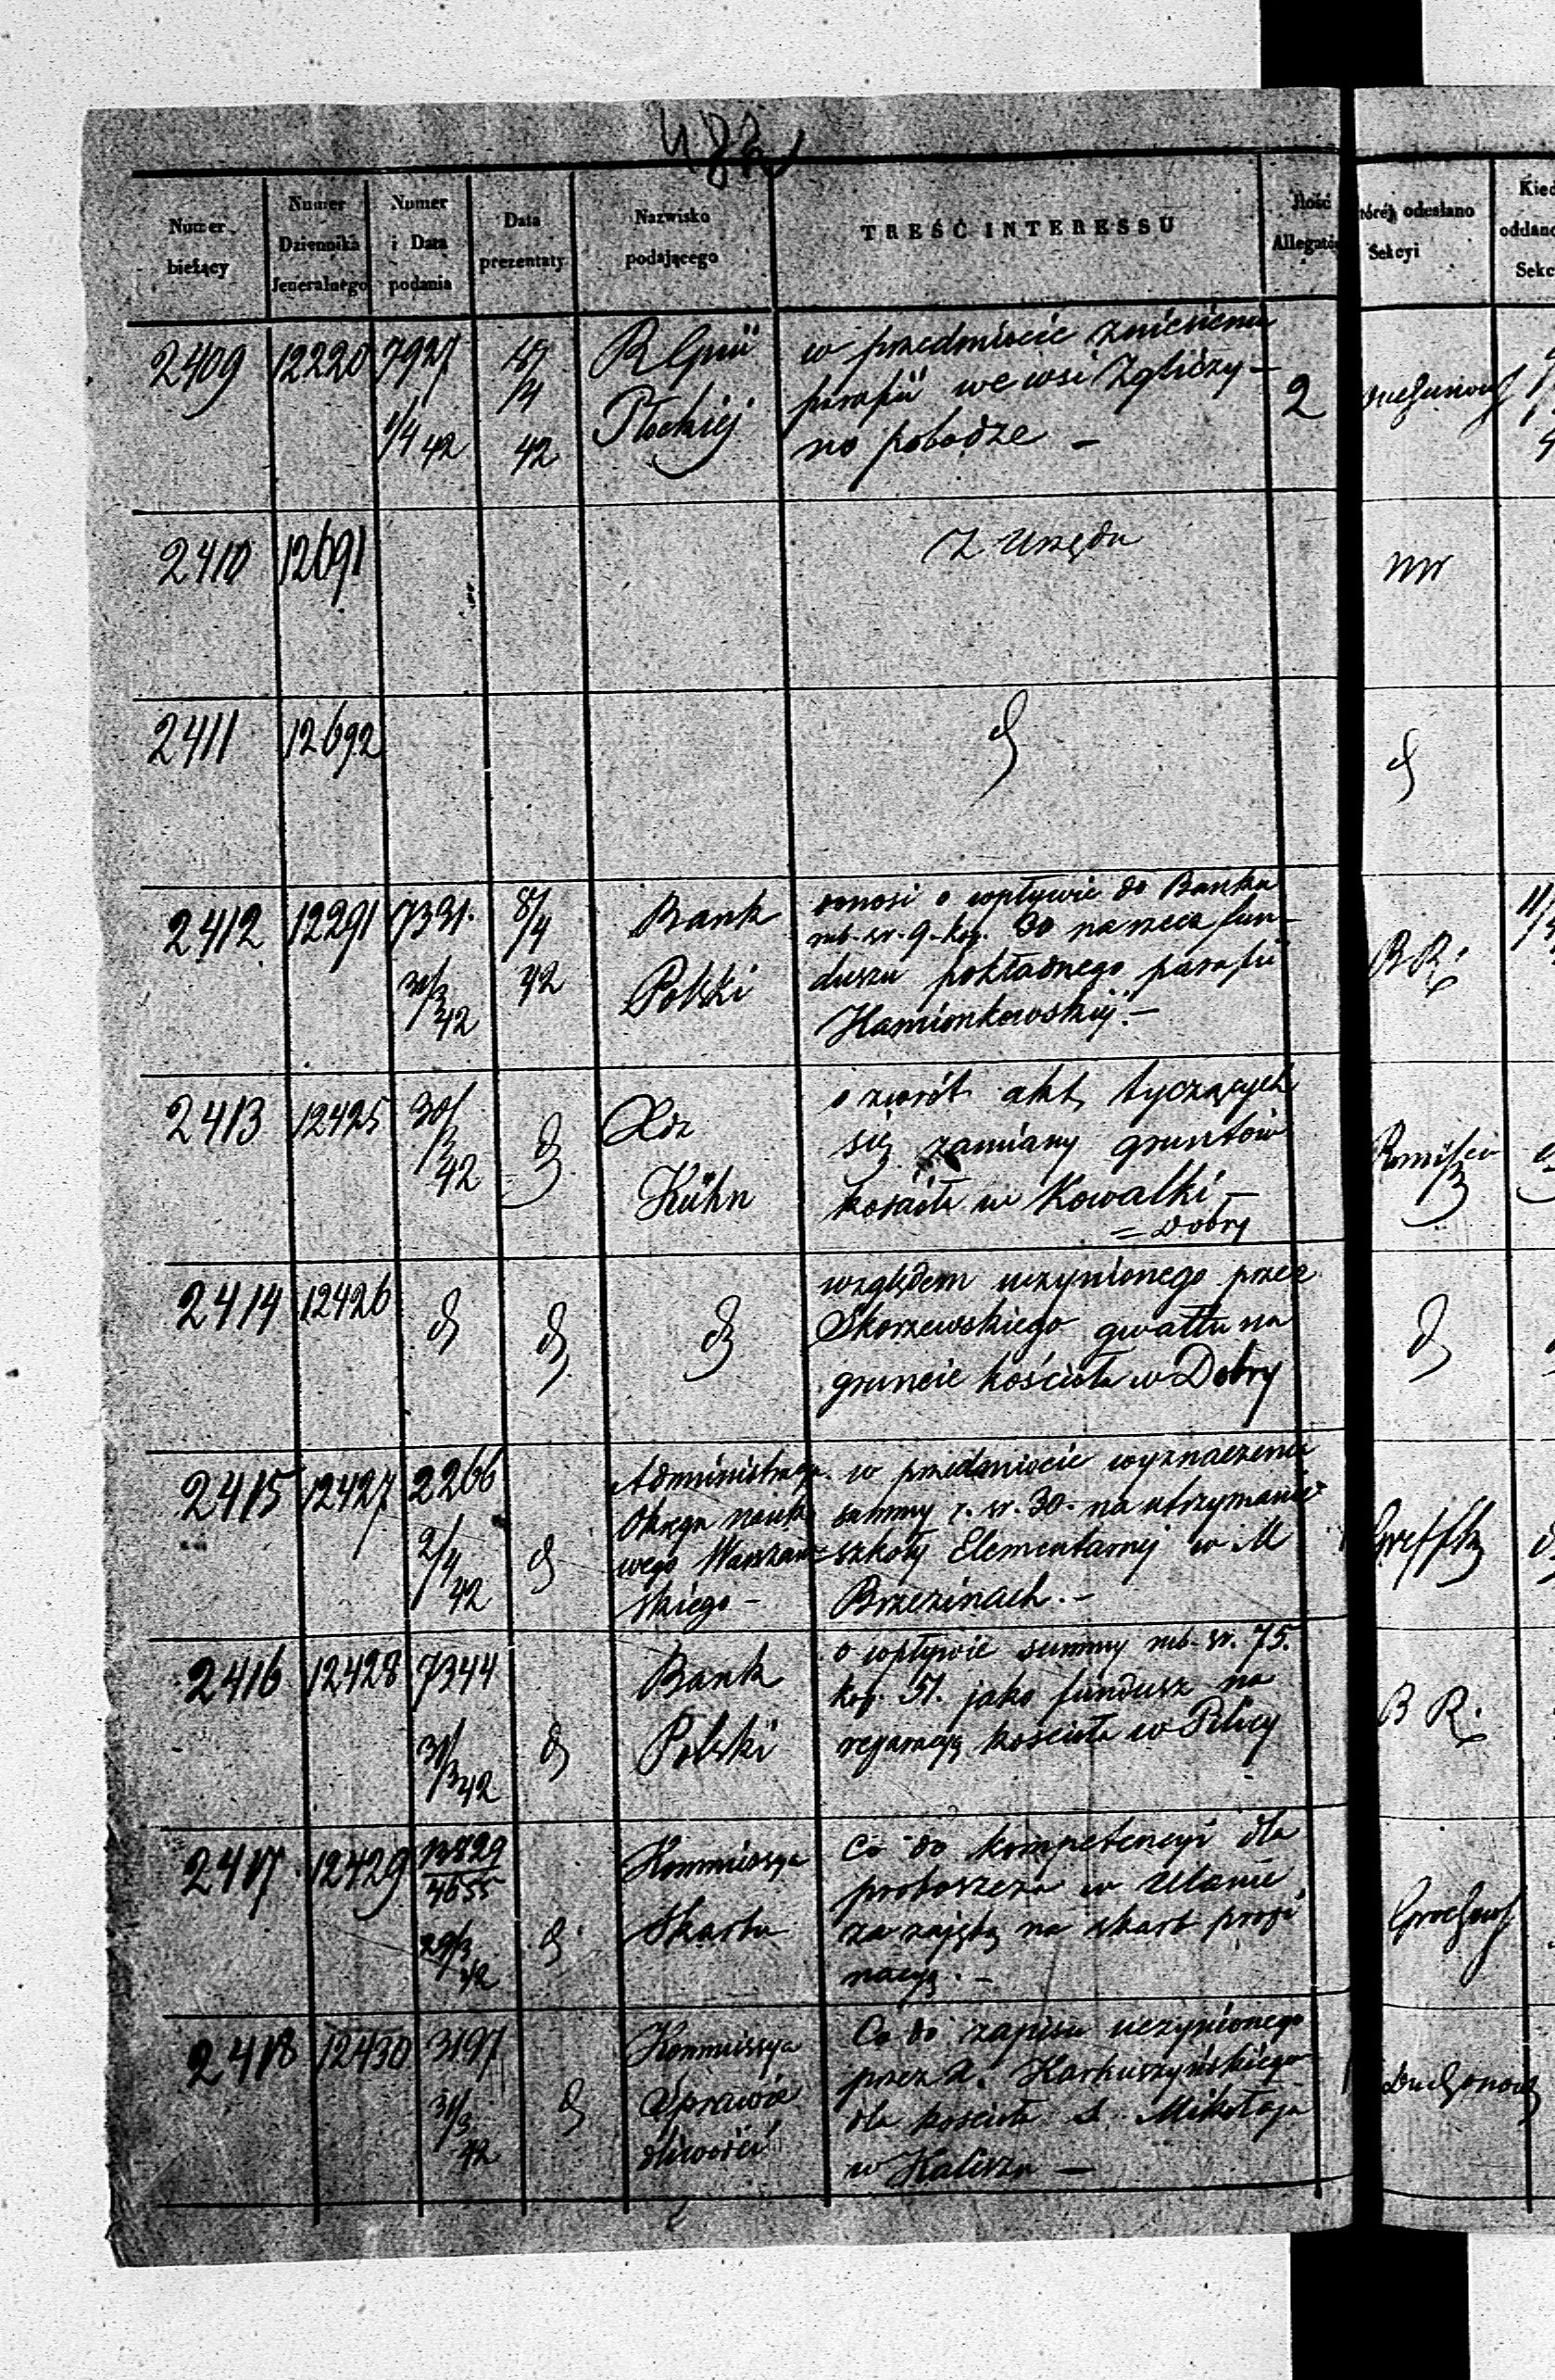 482
Numer bieżący
Numer Dziennika Jeneralnego
Numer i Data podania
Data prezentaty
Nazwisko podającego
TREŚĆ INTERESSU
Ilość Allegatów
której odesłano Sekcyi
2409 12220 7927 1/4 42 8/4 42
R Gnii
Płockiej
w przedmiocie zniesienia
parafii we wsi Zgliczy-
no pobodze –
2
2410 12691
Z Urzędu
2411 12692
d
d
2412 12291 7331. 30/3 42 8/4 42
Bank
Polski
donosi o wpływie do Banku
rub. sr. 9. kop. 30 na rzecz fun-
duszu pokładnego parafii
Kamionkowskiej. –
B R.
2413 12425 30/3 42 d
Xdz
Kühn
o zwrót akt, tyczących
się zamiany gruntów
kościoła w Kowalki –
= Dobry
2414 12426 d d d
względem uczynionego przez
Skorzewskiego gwałtu na
gruncie kościoła w Dobry
d
2415 12427 2266 2/4 42 d
Administracya
Okręgu nauko
wego Warszaw=
skiego –
w przedmiocie wyznaczenia
summy r. sr. 30. na utrzymanie
szkoły Elementarnej w M
Brzezinach. –
2416 12428 7344 31/3 42 d
Bank
Polski
o wpływie summy rub. sr. 75.
kop. 51. jako fundusz na
reparacyą kościoła w Pilicy
B R.
2417 12429 13829/4655 29/3 42 d
Kommissya
Skarbu
Co do kompetencyi dla
proboszcza w Ulanie
za zajętą na skarb propi
nacyą. –
2418 12430 3197 31/3 42 d
Kommissya
Sprawie
dliwości
Co do zapisu uczynionego
przez X. Karkuszyńskiego
dla kościoła S. Mikołaja
w Kaliszu –